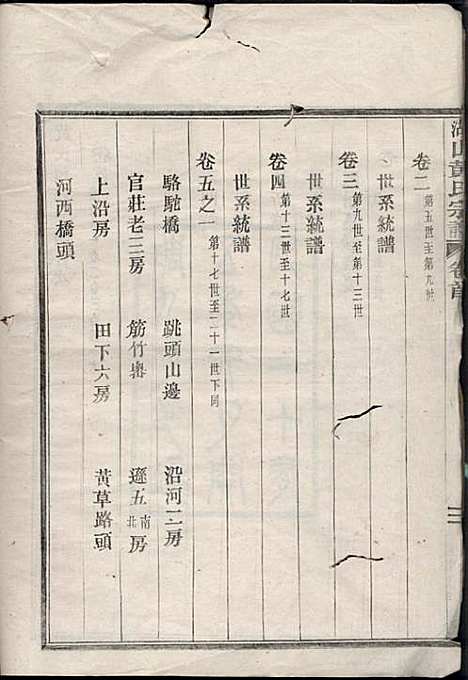 湖山黃氏宗譜 卷首
卷二 第五世至第九世
世系統譜
卷三 第九世至第十三世
世系統譜
卷四 第十三世至十七世
世系統譜
卷五之一 第十七世至二十一世下同
駱駝橋 跳頭山邊 沿河二房
官莊老三房 筋竹㘭 遜五南北房
上沿房 田下六房 黃草路頭
河西橋頭